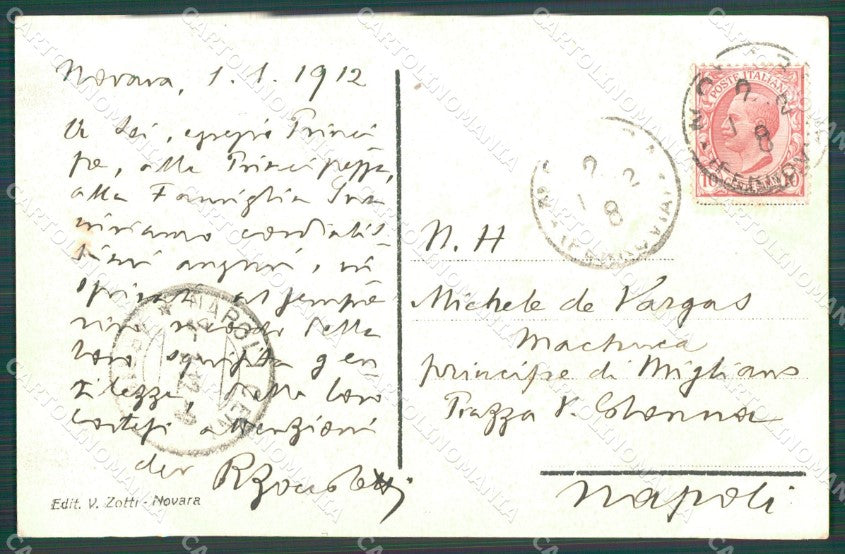 Novara, 1.1.1912
A Lei, egregio Princi
pe, alla Principessa,
alla Famiglia Sua
inviamo cordialis
simi auguri, in
sempre
vivo ricordo della
loro squisita gen
tilezza, della loro
cortesi attenzioni
dev
Edit. V. Zotti - Novara
POSTE ITALIANE
10
N. H
Michele de Vargas
Machuca
principe di Migliano
Piazza V. Colonna
Napoli
NAPOLI CEN
CARTOLINOMANIA